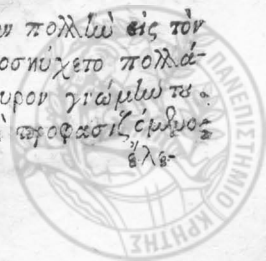 ν πολλὴν εἰς τὸν
οσηύχετο πολλά-
υρον γνώμην το
προφασιζόμενο-
ἔλε-
ΠΑΝΕΠΙΣΤΗΜΙΟ ΚΡΗΤΗΣ